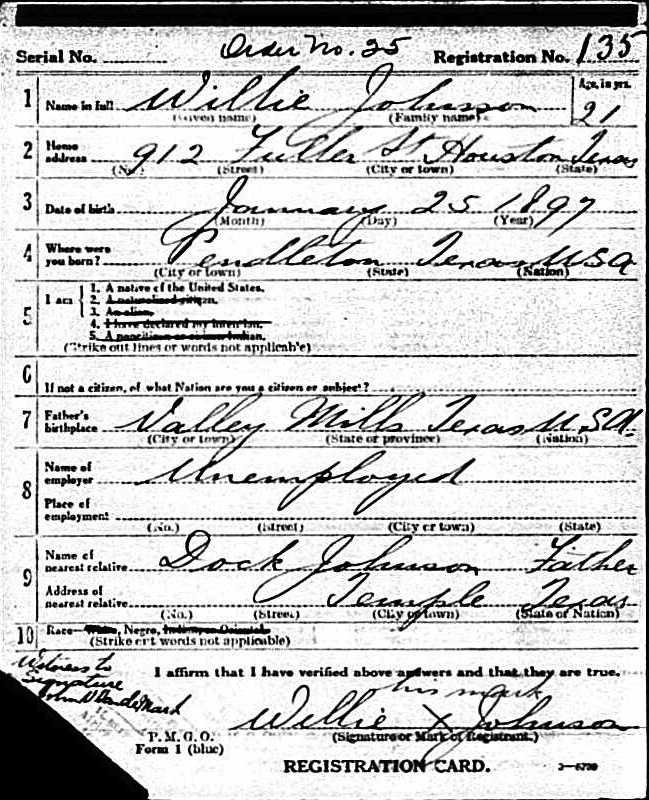 Order No. 25
Serial No. Registration No. 135
1 Name in full Willie Johnson Age, in yrs. 21
(Given name) (Family name)
2 Home address 912 Fuller St Houston Texas
(No.) (Street) (City or town) (State)
3 Date of birth January 25 1897
(Month) (Day) (Year)
4 Where were you born? Pendleton Texas USA
(City or town) (State) (Nation)
5 I am
1. A native of the United States.
2. A naturalized citizen.
3. An alien.
4. I have declared my intention.
5. A noncitizen or citizen Indian.
(Strike out lines or words not applicable)
6 If not a citizen, of what Nation are you a citizen or subject?
7 Father's birthplace Valley Mills Texas U.S.A.
(City or town) (State or province) (Nation)
8 Name of employer Unemployed
Place of employment
(No.) (Street) (City or town) (State)
9 Name of nearest relative Dock Johnson Father
Address of nearest relative Temple Texas
(No.) (Street) (City or town) (State or Nation)
10 Race—White, Negro, Indian, or Oriental.
(Strike out words not applicable)
Witness to
Signature
John
I affirm that I have verified above answers and that they are true.
his mark
Willie X Johnson
(Signature or Mark of Registrant.)
P.M.G.O.
Form 1 (blue)
REGISTRATION CARD.